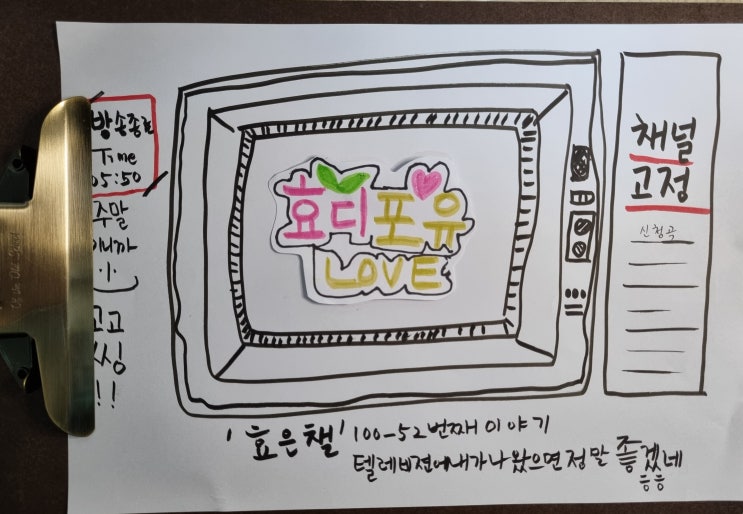 방송종료
Time
05:50
주말
이니까
고고
씽
!!
효디포유
LOVE
채널
고정
신청곡
'효은챌' 100-52번째 이야기
텔레비젼에 내가 나왔으면 정말 좋겠네
흥흥